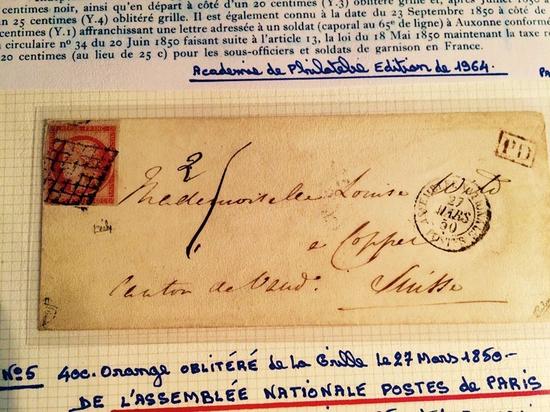 ainsi qu'en départ à côté d'un 20 centimes (Y.3) oblitéré grille et, après
un 25 centimes (Y.4) oblitéré grille. Il est également connu à la date du 23 Septembre 1850 à côté de
(Y.1) affranchissant une lettre adressée à un soldat (caporal au 65e de ligne) à Auxonne
circulaire n° 34 du 20 Juin 1850 faisant suite à l'article 13, la loi du 18 Mai 1850 maintenant la taxe
20 centimes (au lieu de 25 c) pour les sous-officiers et soldats de garnison en France.
Académie de Philatélie Edition de 1964.
PA
REPUB. FRANC
PD
2
Mademoiselle Louise
27
MARS
50
POSTES
à Coppet
Canton de Vaud. Suisse
N°5 40c. Orange OBLITÉRÉ de La Grille Le 27 Mars 1850-
DE L'ASSEMBLÉE NATIONALE POSTES de PARIS